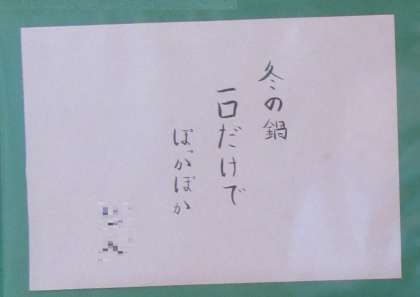 冬の鍋
一口だけで
ぽっかぽか